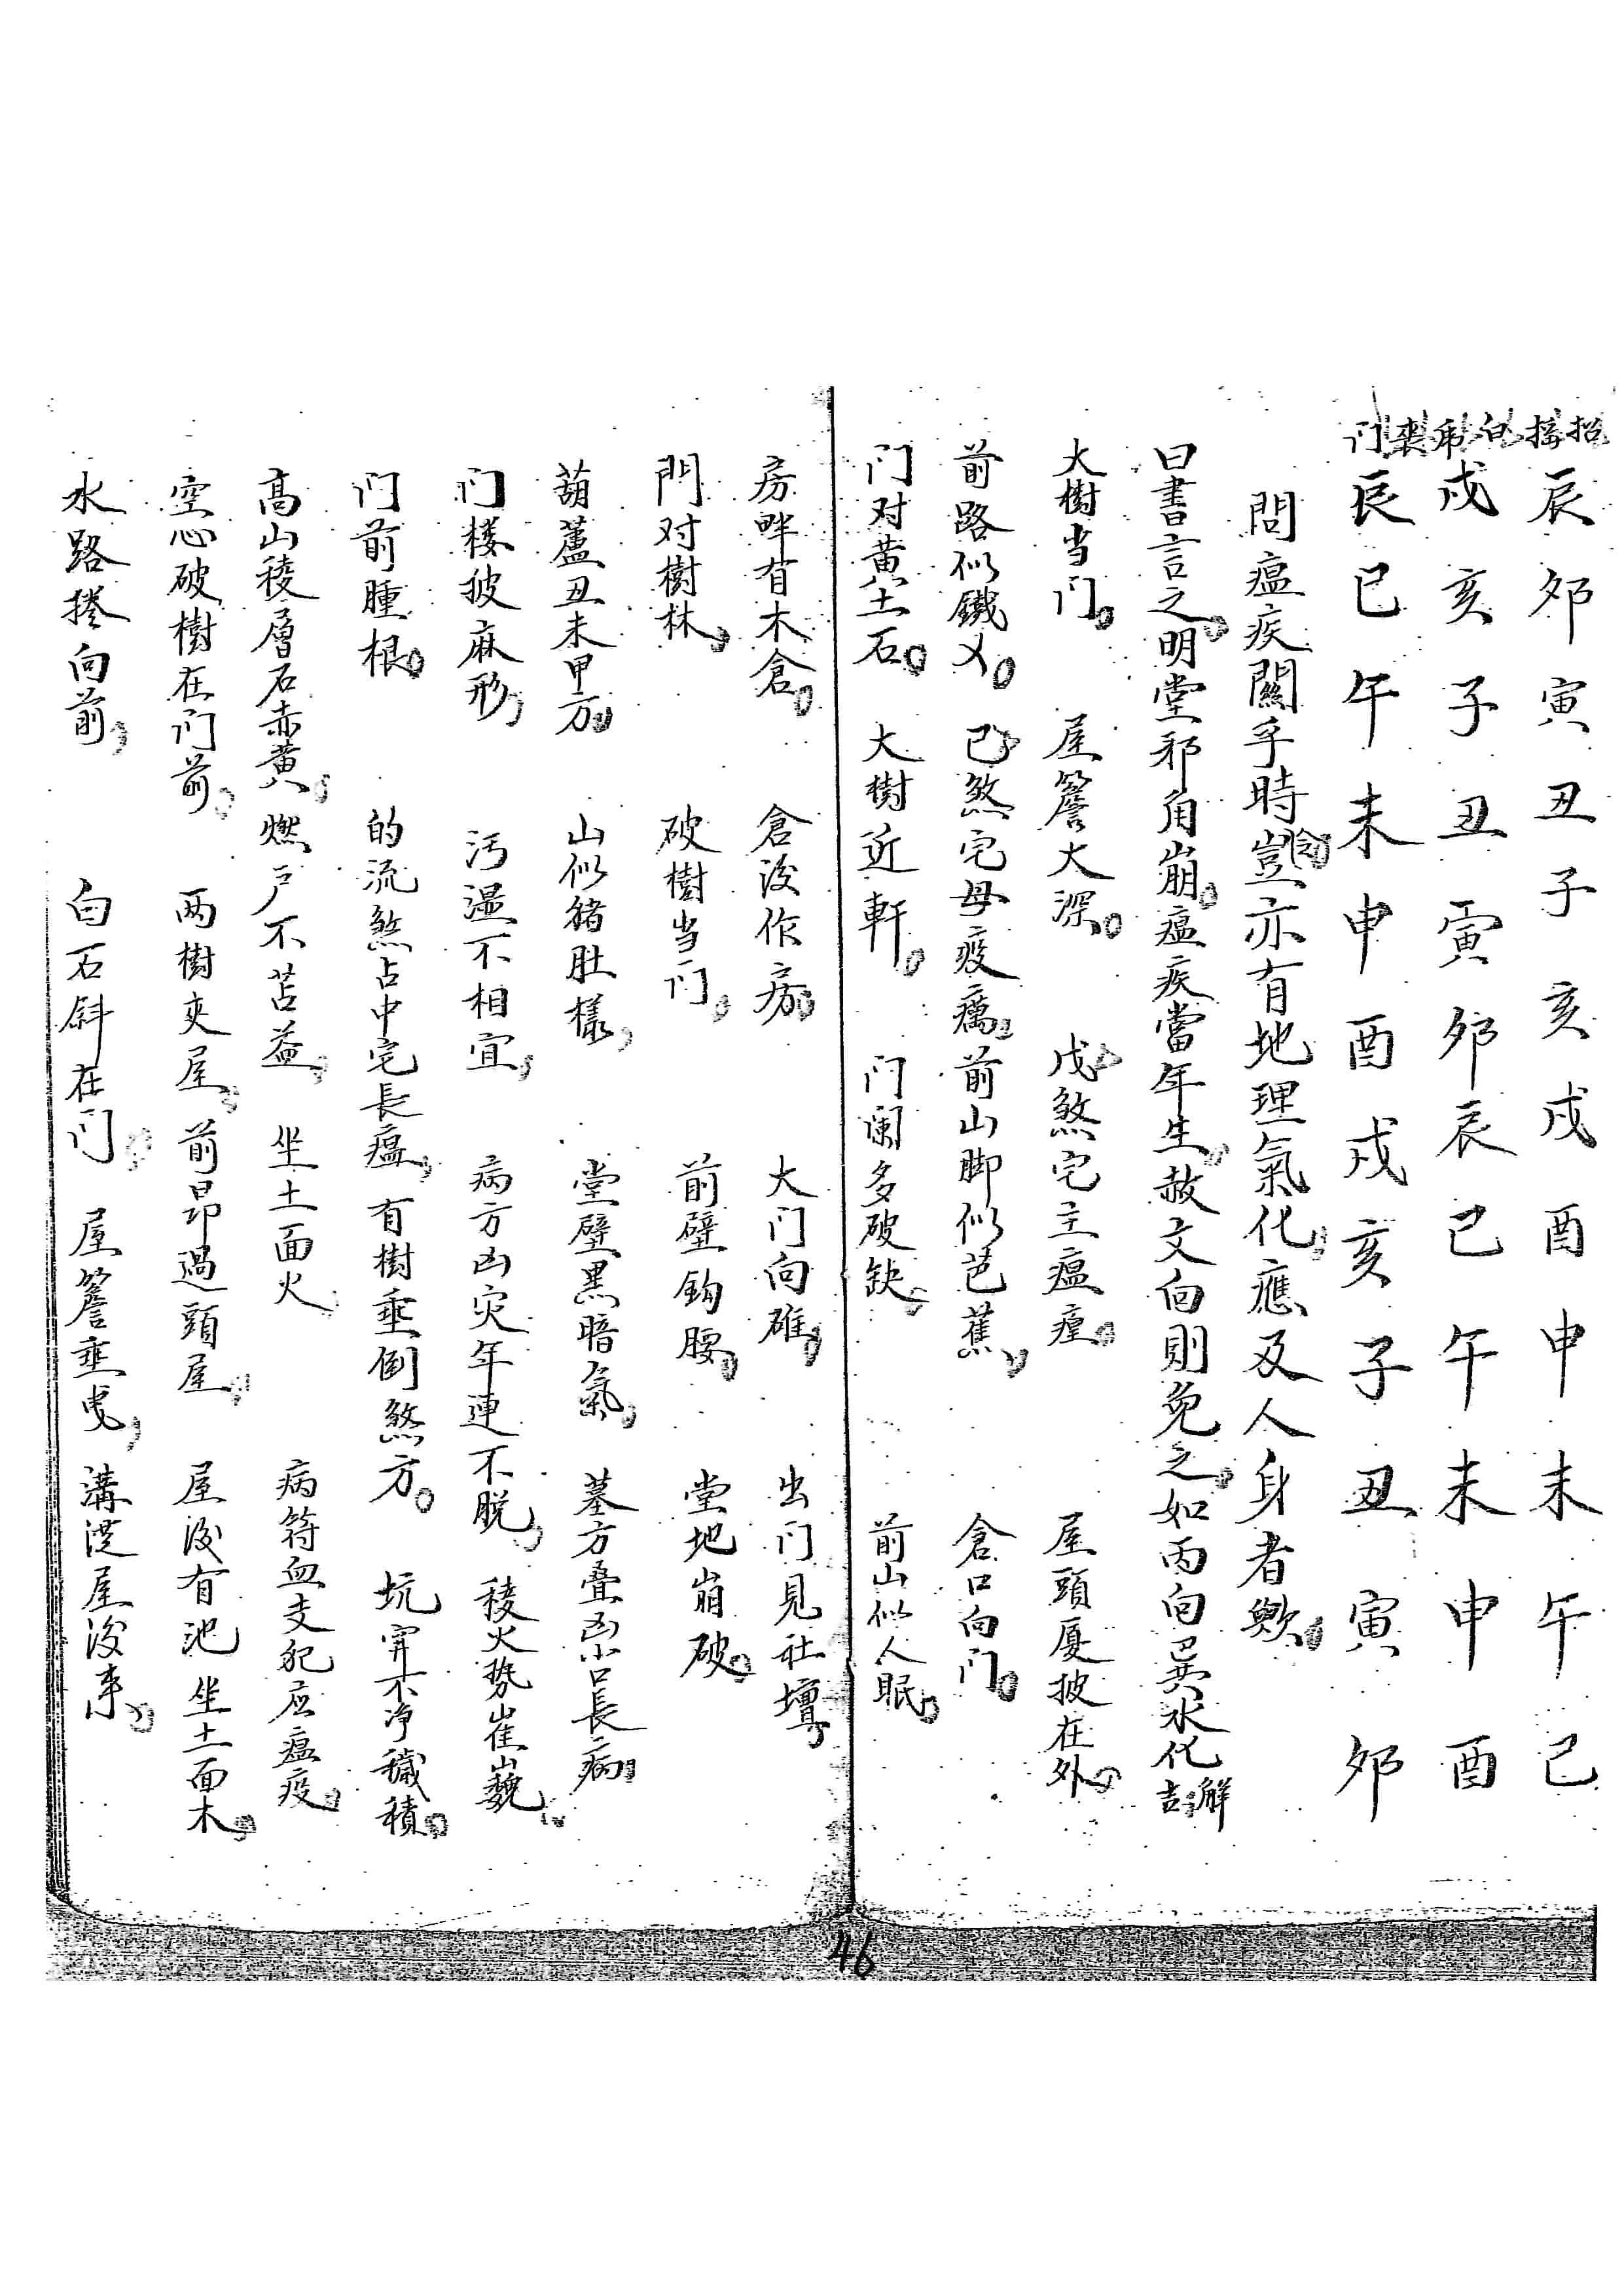 招 接 白 布 喪 门
辰 卯 寅 丑 子 亥 戌 酉 申 未 午 巳
戌 亥 子 丑 寅 卯 辰 巳 午 未 申 酉
辰 巳 午 未 申 酉 戌 亥 子 丑 寅 卯
問瘟疾關乎時令豈亦有地理氣化應及人身者歟
曰書言之明堂邪角崩瘟疾當年生赦文向則免之如丙向巽水化解吉
大樹当门 屋簷大深 戊煞宅主瘟瘴 屋頭厦披在外
前路似鐵乂 已煞宅母疫癘 前山脚似芭蕉 倉口向门
门对黄土石 大樹近軒 门闌多破缺 前山似人眠
房畔有木倉 倉後作房 大门向碓 出门見社壇
門对樹林 破樹当门 前壁鈎腰 堂地崩破
葫蘆丑未甲方 山似猪肚樣 堂壁黑暗氣 墓方叠凶小口長病
门楼披麻形 污濕不相宜 病方凶灾年連不脱 稜火势崔巍
门前腫根 的流煞占中宅長瘟 有樹垂倒煞方 坑穽不净穢積
高山稜層石赤黄 燃户不苫蓋 坐土面火 病符血支犯应瘟疫
空心破樹在门前 两樹夾屋 前昂過頭屋 屋後有池 坐土面木
水路捲向前 白石斜在门 屋簷垂曳 溝從屋後来
46